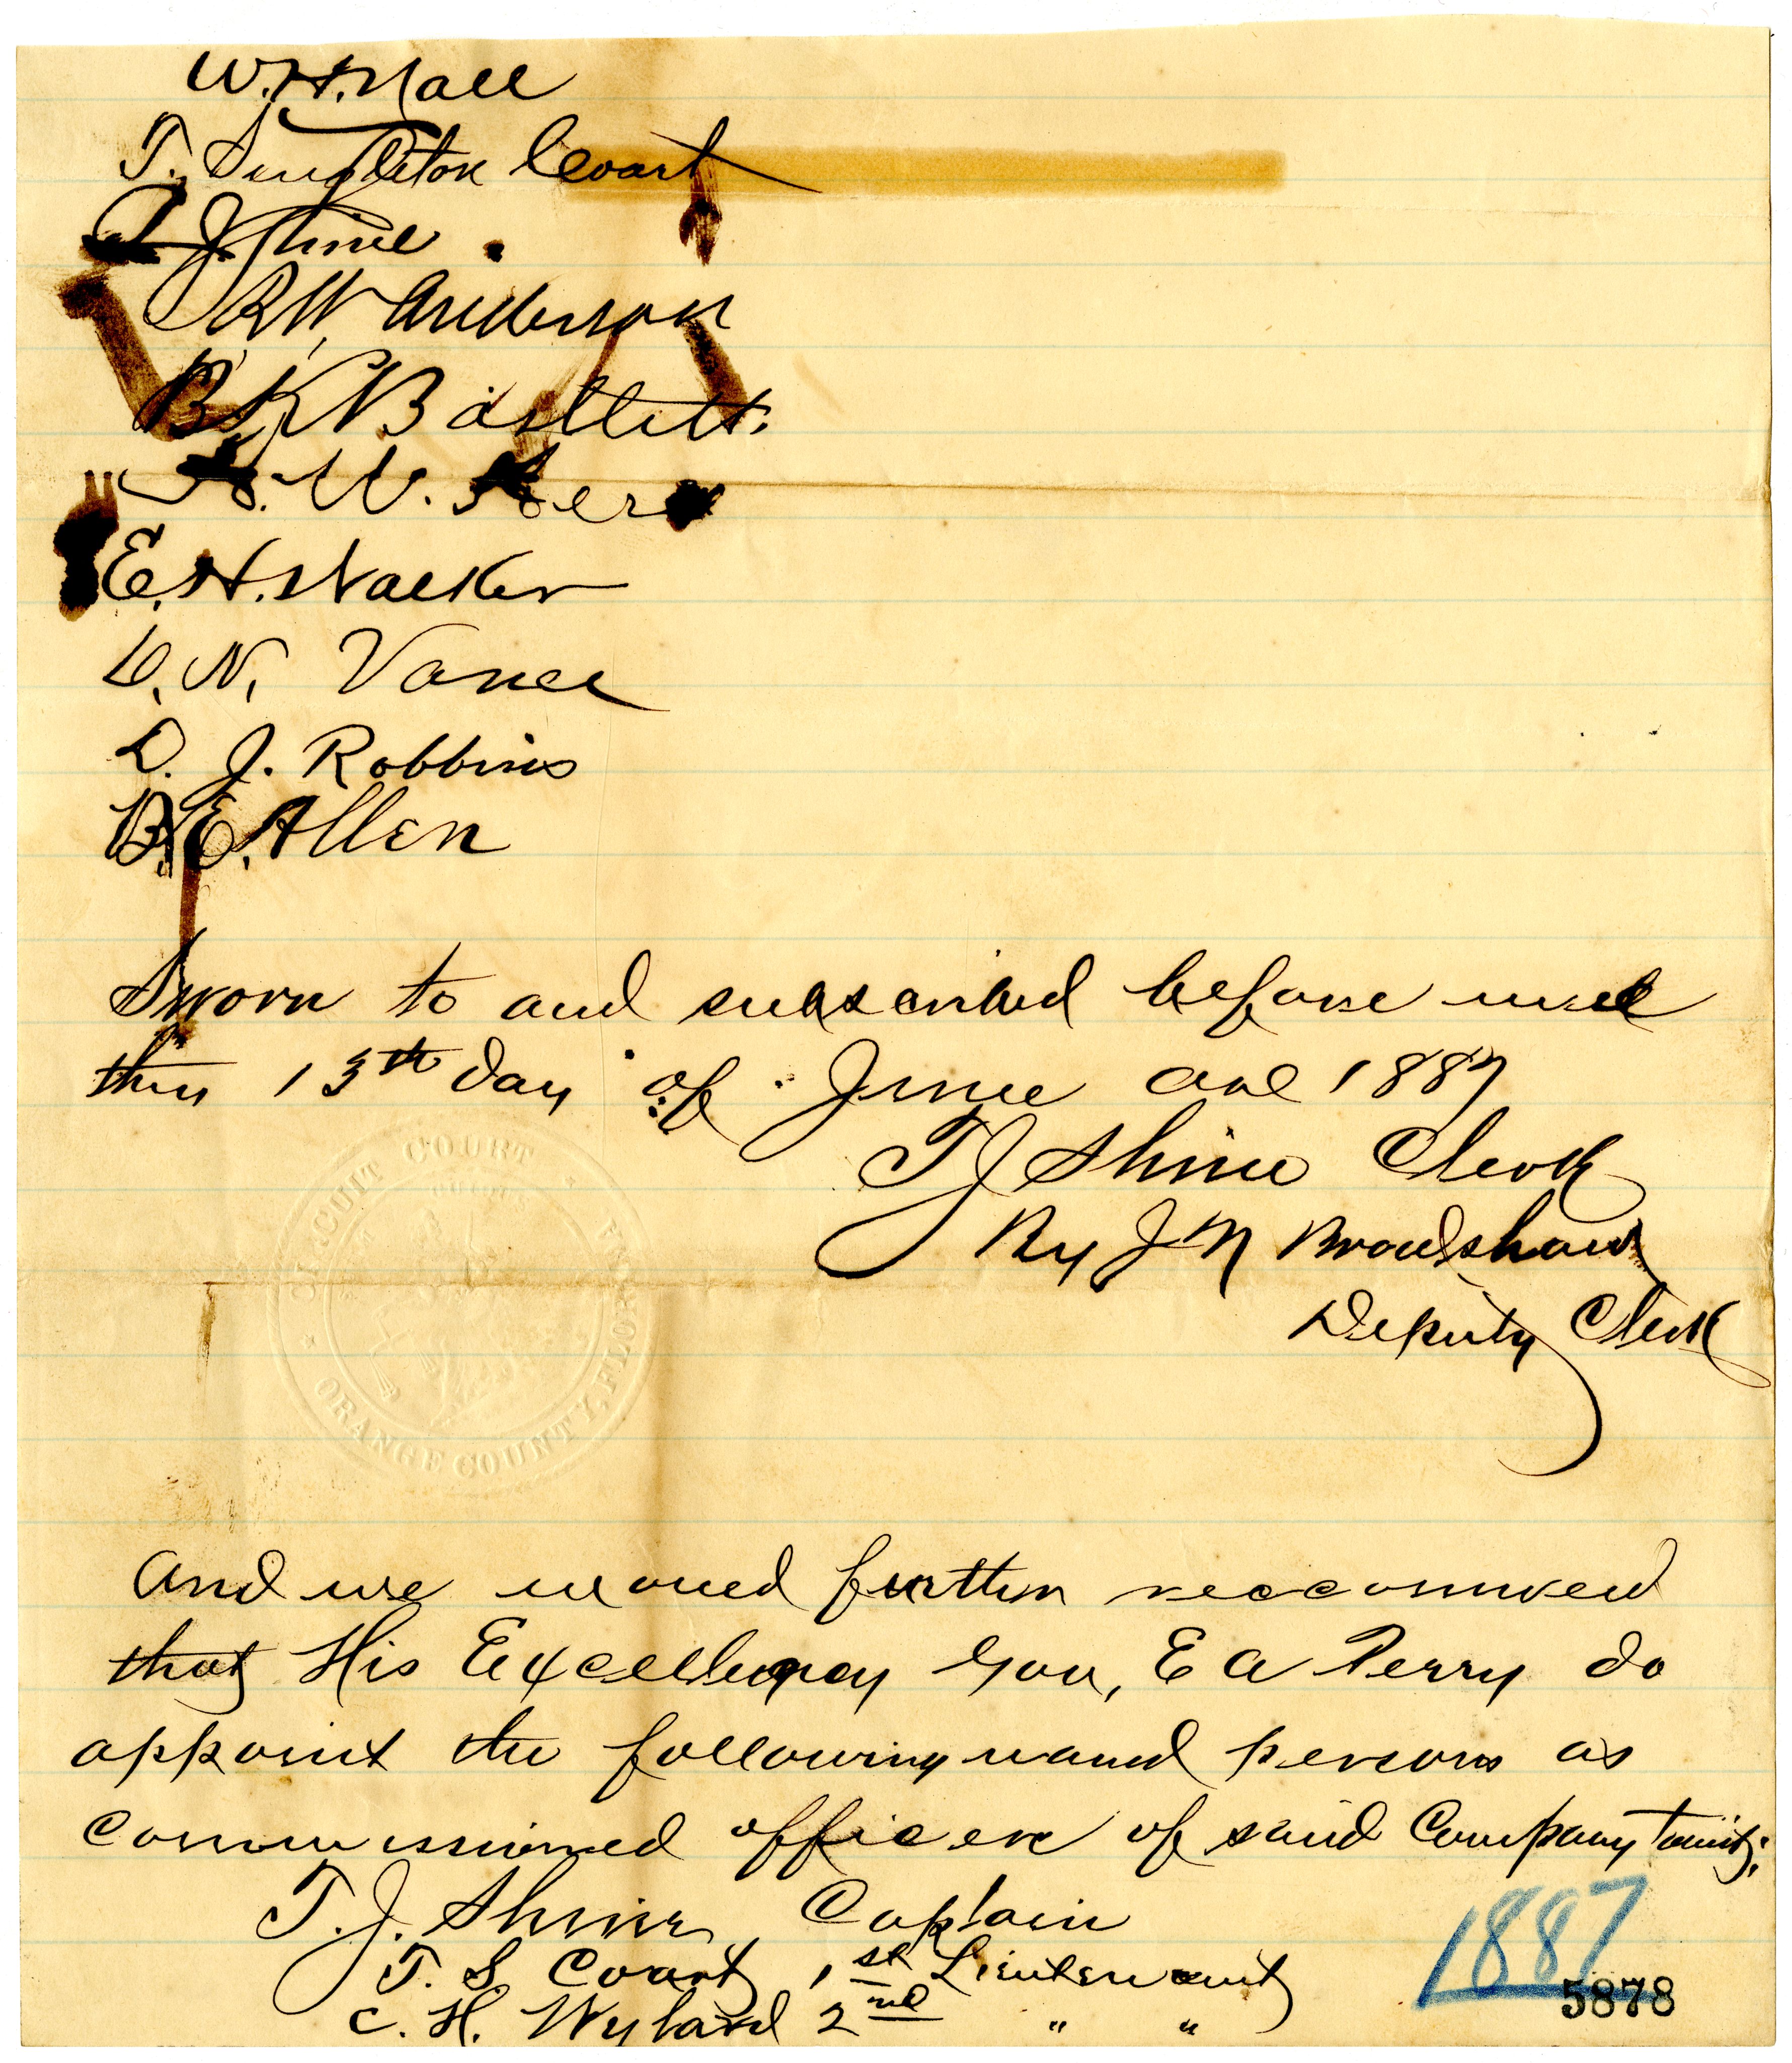 W. H. Nall
T. Singleton Coart
T J Shine
R. W. Anderson
B K Bartlett
W.
E. H. Walker
D. N. Vance
D. J. Robbins
B. E. Allen
Sworn to and subscribed before me
this 13th day of June A D 1887
T J Shine Clerk
By J N Bradshaw
Deputy Clerk
CIRCUIT COURT
ORANGE COUNTY, FLORIDA
And we would further reccommend
that His Excellency Gov, E A Perry do
appoint the following named persons as
commissioned officers of said Company towit;
T. J. Shine Captain
T. S. Coart 1st Lieutenant
C. H. Wylard 2nd " "
1887
5878